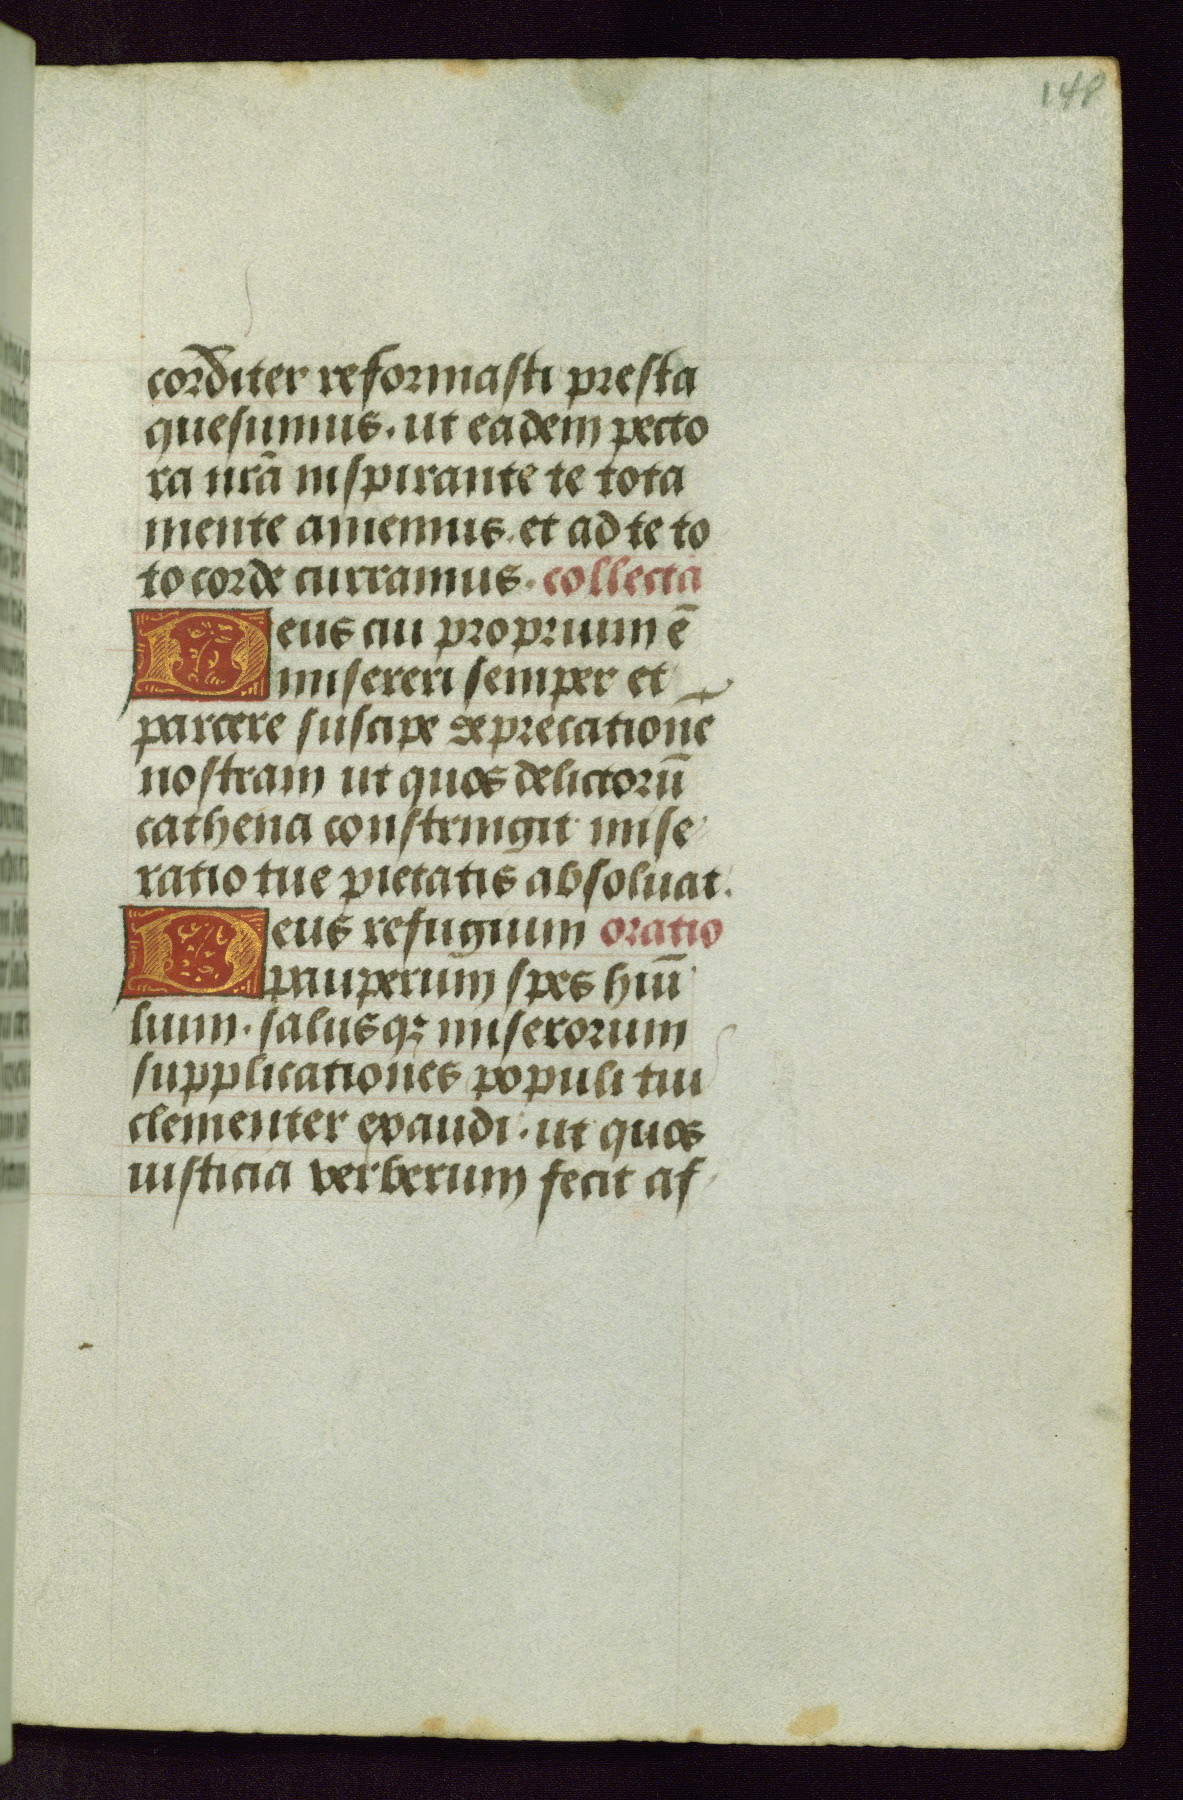 148
corditer reformasti presta
quesumus. ut eadem pecto
ra nrā inspirante te tota
mente amemus. et ad te to
to corde curramus. collecta
Deus cui proprium ē
misereri semper et
parcere suscipe deprecationē
nostram ut quos delictorū
cathena constringit mise
ratio tue pietatis absoluat.
Deus refugium oratio
pauperum spes hūi
lium. salusqꝫ miserorum
supplicationes populi tui
clementer exaudi. ut quos
iusticia verberum fecit af